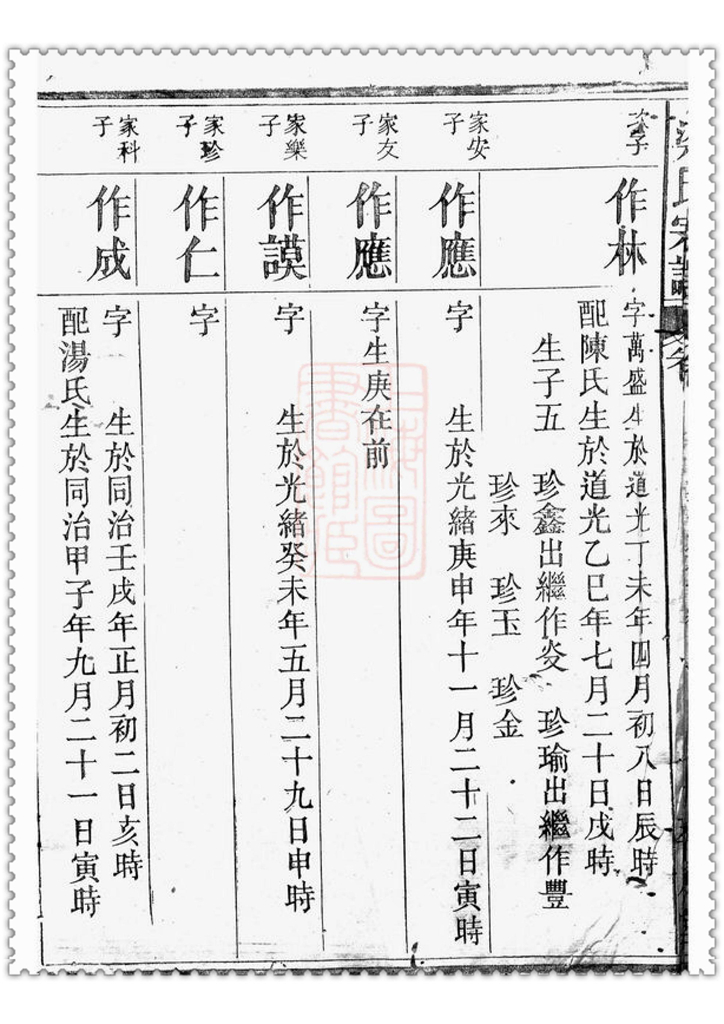 氏宗譜
子
作林
字萬盛生於道光丁未年四月初八日辰時
配陳氏生於道光乙巳年七月二十日戌時
生子五 珍鑫出繼作炎 珍瑜出繼作豐
珍來 珍玉 珍金
家安
子
作應
字 生於光緒庚申年十一月二十二日寅時
家友
子
作應
字生庚在前
家樂
子
作謨
字 生於光緒癸未年五月二十九日申時
家珍
子
作仁
字
家科
子
作成
字 生於同治壬戌年正月初二日亥時
配湯氏生於同治甲子年九月二十一日寅時
上海圖
書館藏